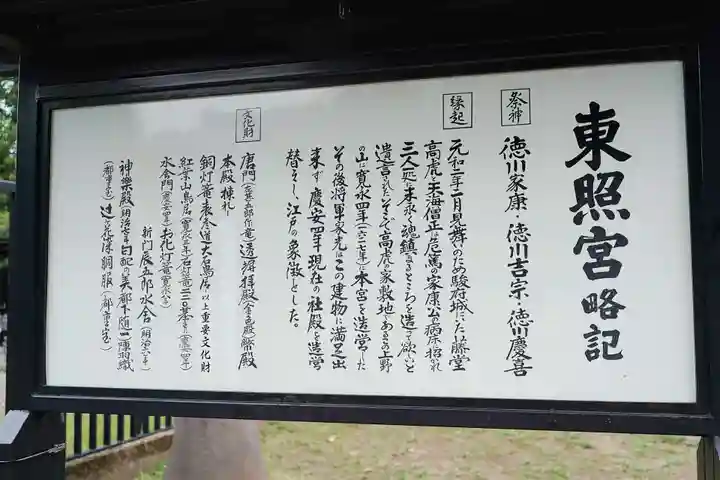 東照宮略記
祭神
徳川家康・徳川吉宗・徳川慶喜
縁起
元和二年二月見舞のため駿府城にいた藤堂
高虎と天海僧正は危篤の家康公の病床に招かれ
三人一処に末永く魂鎮まるところを造って欲しいと
遺言されたそこで高虎の家敷地であるこの上野
の山に寛永四年(一六二七年)に本宮を造営した
その後将軍家光はこの建物に満足出
来ず慶安四年現在の社殿を造営
替えし、江戸の象徴とした。
文化財
唐門(左甚五郎作の竜)透塀拝殿(金色殿)幣殿
本殿棟札
銅灯篭表参道大石鳥居 以上重要文化財
紅葉山鳥居
水舎門(慶安四年)お化灯篭(寛永八年)
新門辰五郎水舎(明治六年)
神楽殿(明治七年)
(都重宝)